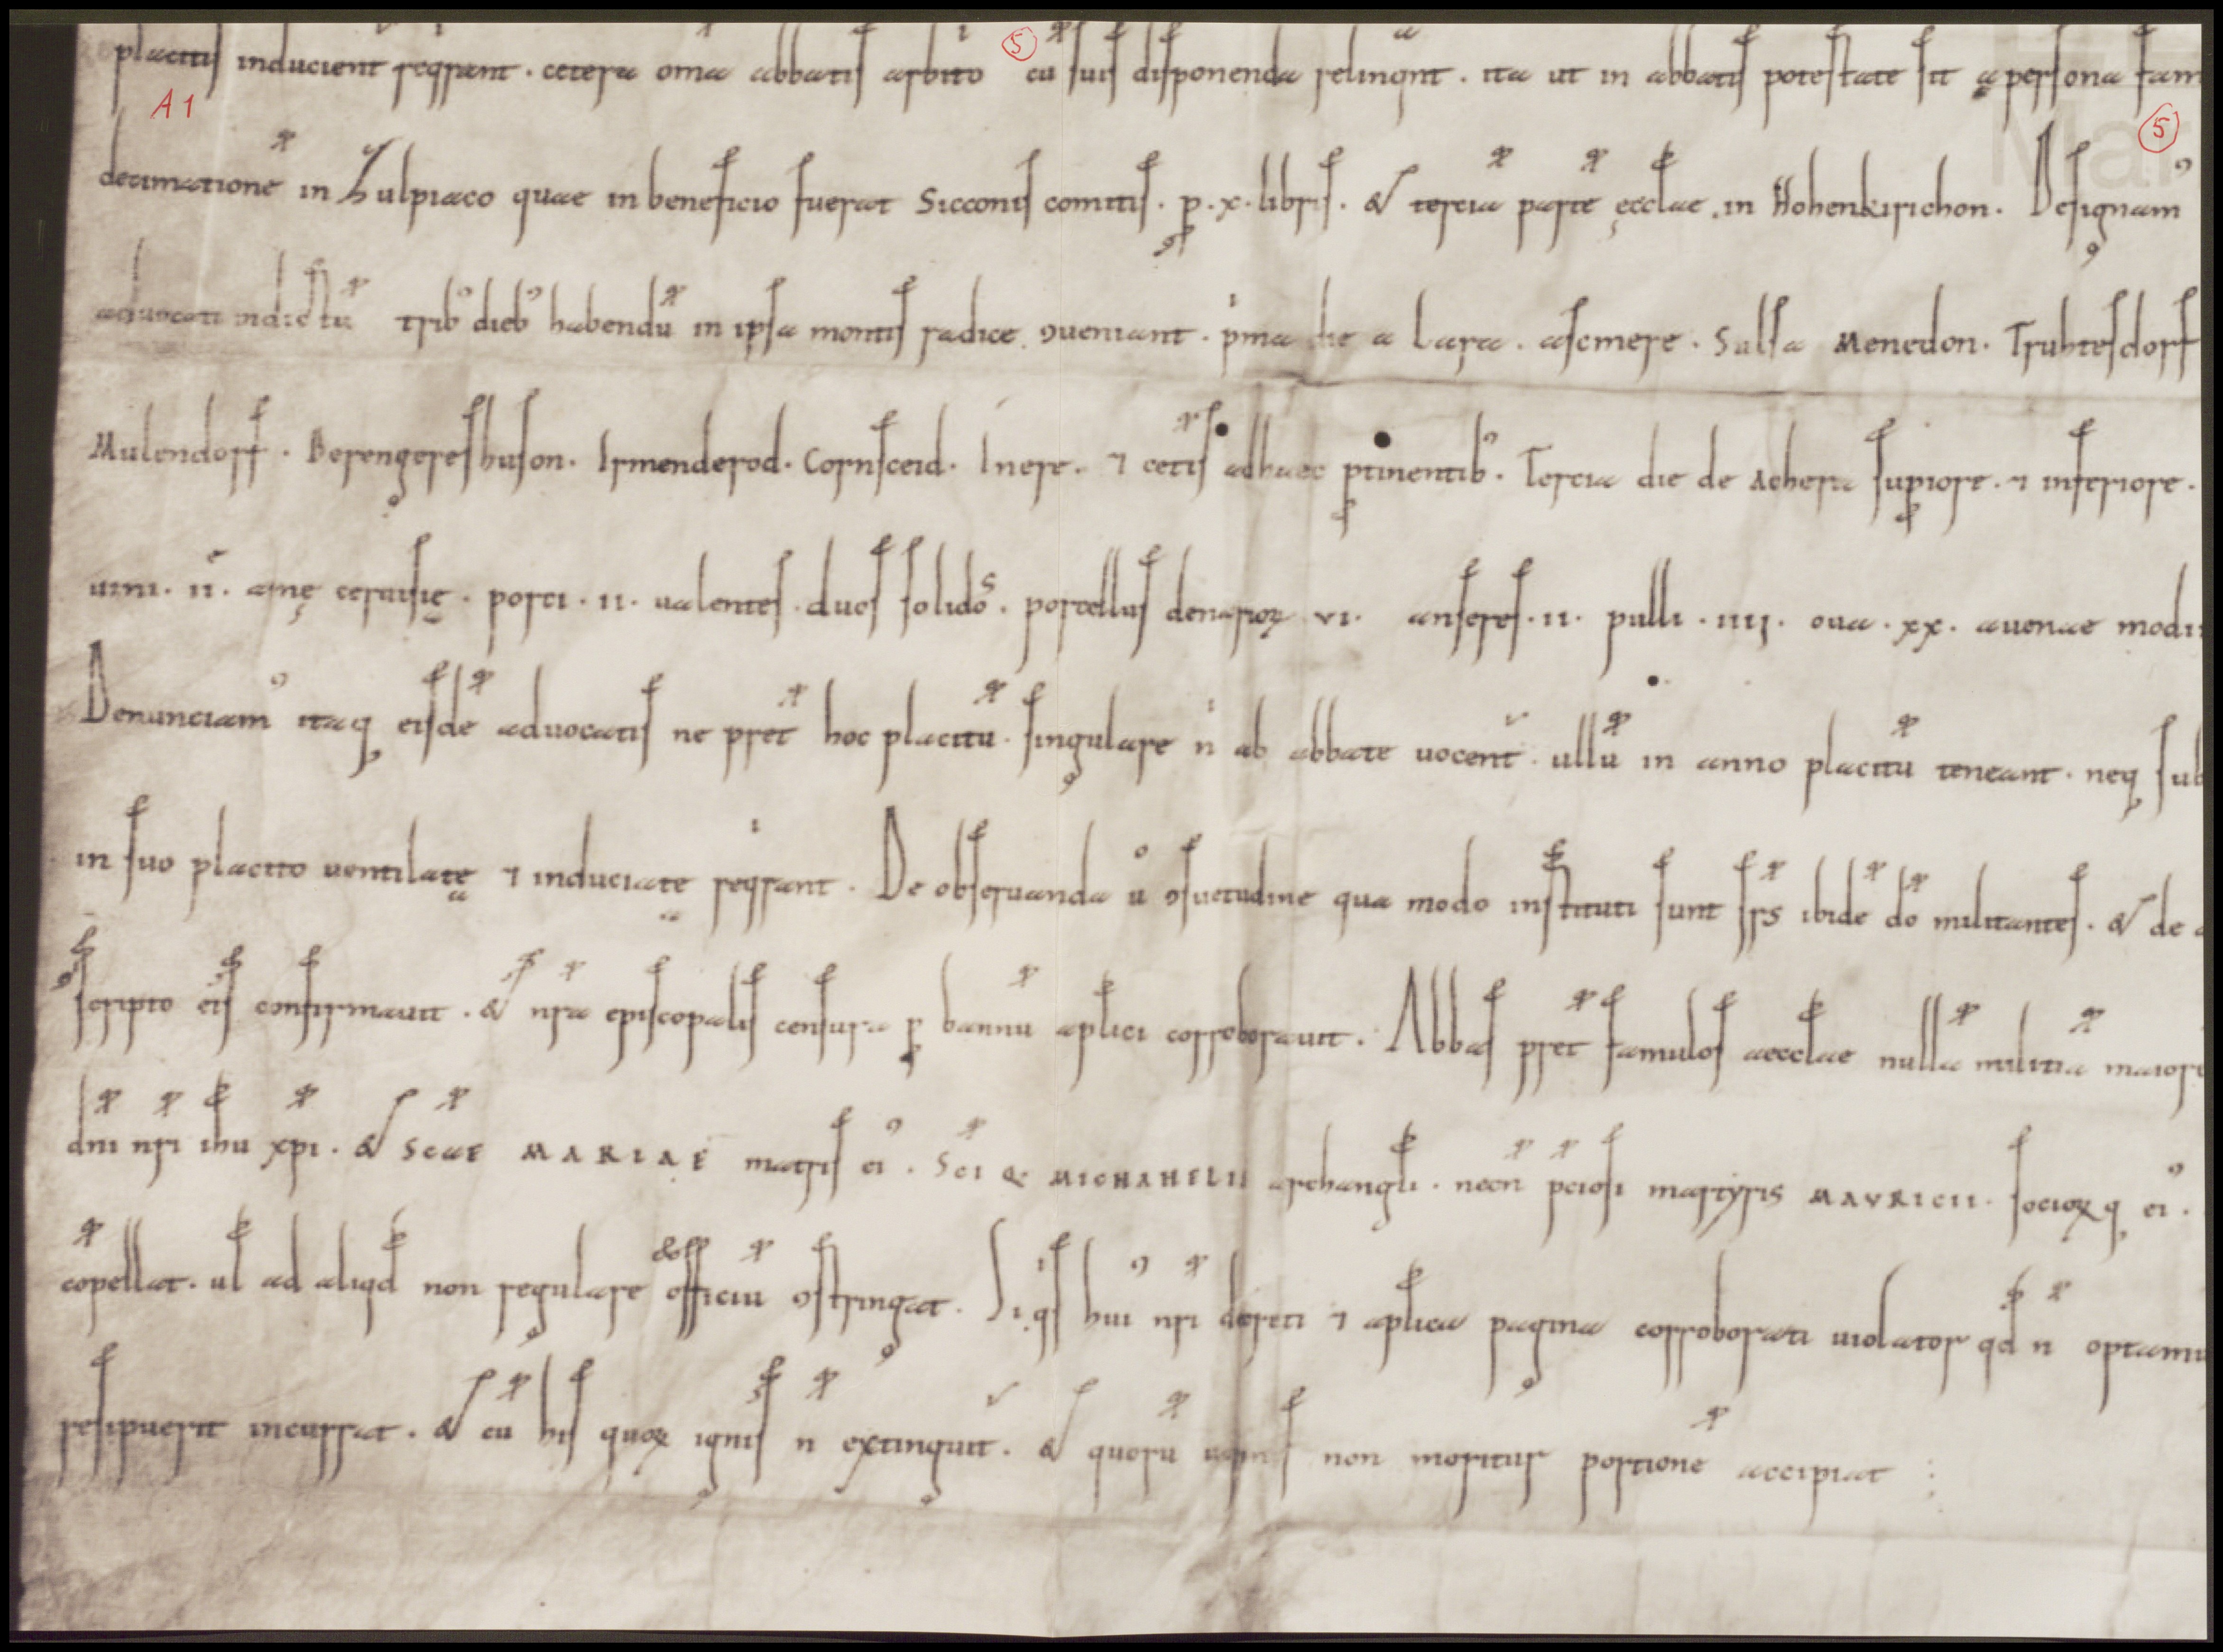 placitis inducient reqrant . cetera oma abbatis arbito cu suis disponenda relinqnt . ita ut in abbatis potestate sit a persona fam
A1
5
5
decimatione in Zulpiaco quae in beneficio fuerat Sicconis comitis . p . x . libris . & tercia parte ęcclae in Hohenkirichon . Designam
advocati indictu trib dieb habendu in ipsa montis radice ꝯueniant . pma die a Lara . ascmere . Sulsa Menedon . Truhtesdorf
Mulendorf . Berengereshuson . Irmenderod . Cornsceid . Inere . ⁊ cetis adhaec ptinentib . Tercia die de Achera supiore . ⁊ inferiore .
uini . ii . amę ceruisię . porci . ii . ualentes . duos solidos . porcellus denarioꝝ vi . anseres . ii . pulli . iiij . oua . xx . auenae modii
Denunciam itaq eisde aduocatis ne pret hoc placitu singulare n ab abbate uocent . ullu in anno placitu teneant . neq sub
in suo placito uentilatę ⁊ induciatę reqrant . De obseruanda u ꝯsuetudine qua modo instituti sunt frs ibide do militantes . & de
scripto eis confirmauit . & nra episcopalis censura p bannu aplici corroborauit . Abbas pret famulos aecclae nulla militia maiore
dni nri ihu xpi . & Scae MARIAE matris ei . Sci & MICHAHELIS archangli . necn pciosi martyris MAVRICII . socioꝝq ei .
copellat . ul ad aliqd non regulare officiu ꝯstringat . Si qs hui nri decreti ⁊ aplica pagina corroborati uiolator qd n optamus
resipuerit incurrat . & cu his quoꝝ ignis n extinguit . & quoru uermis non moritur portione accipiat